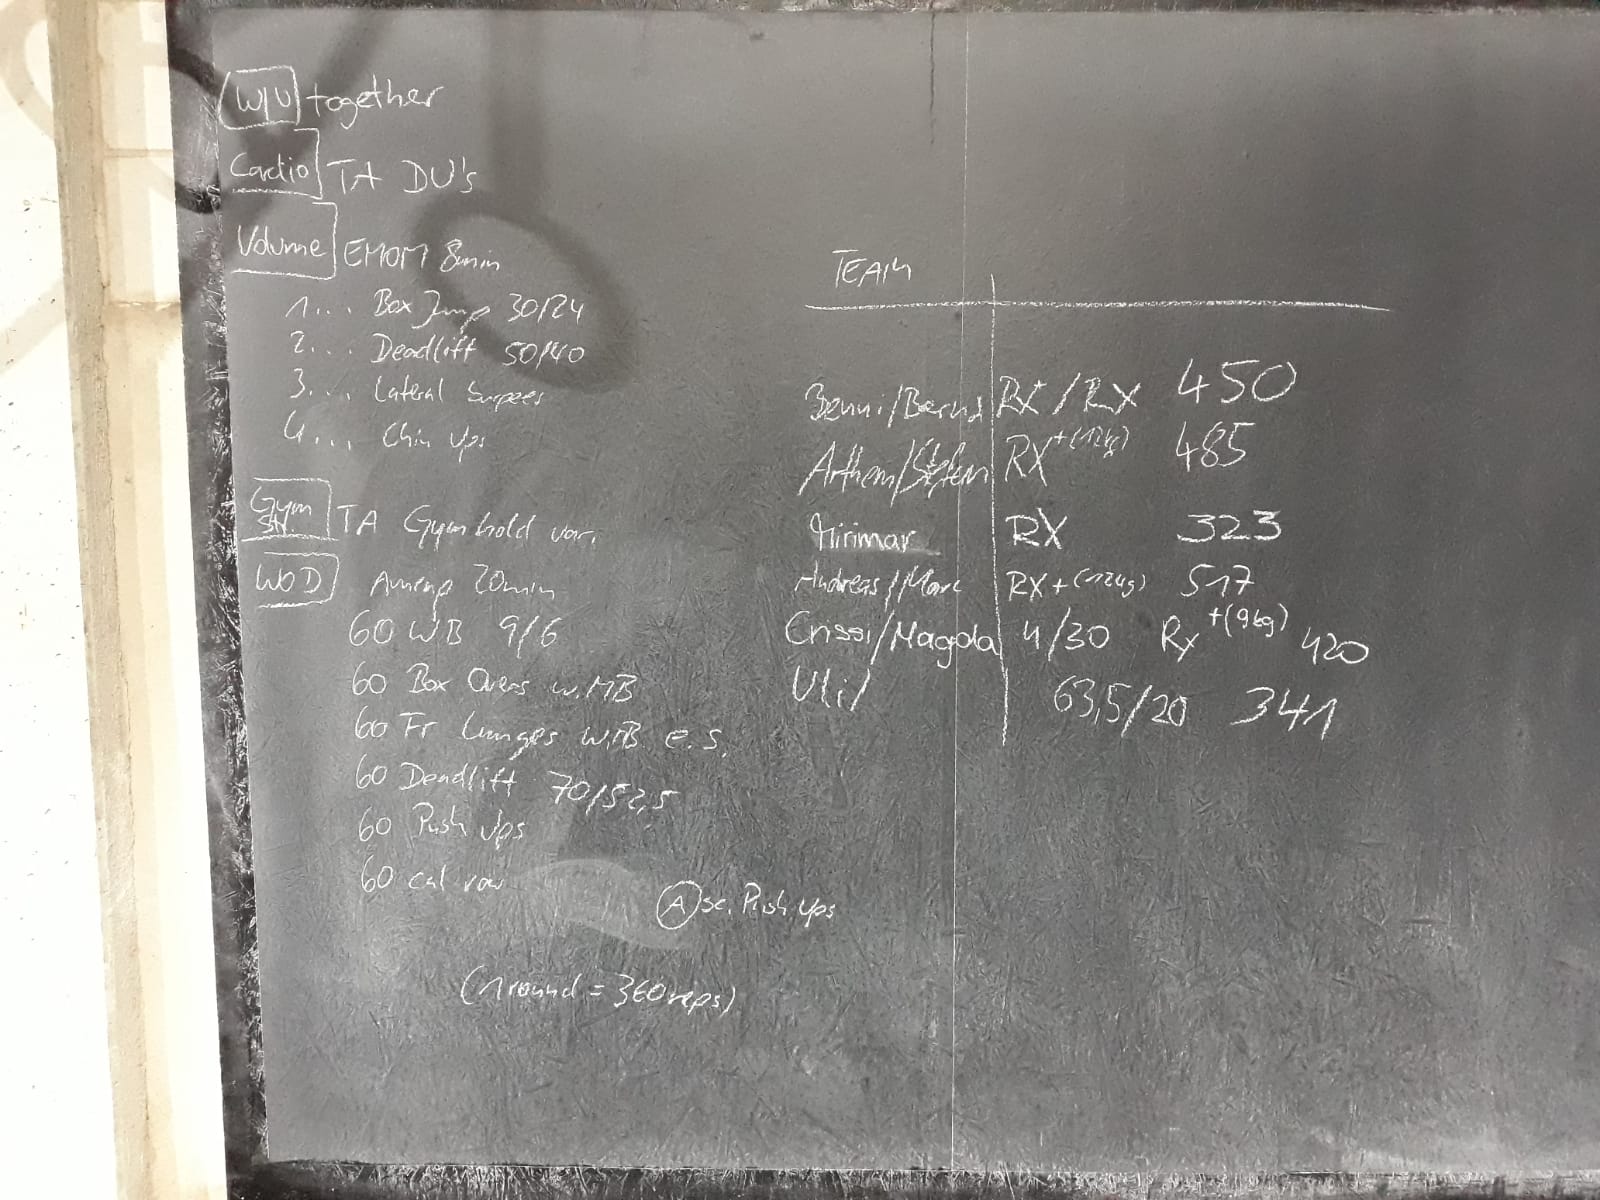 W/U together
Cardio TA DU's
Volume EMOM 8min
1... Box Jump 30/24
2... Deadlift 50/40
3... Lateral Burpees
4... Chin Ups
Gym St. TA Gym hold var.
WOD Amrap 20min
60 WB 9/6
60 Box Overs w.MB
60 Fr Lunges w.MB e.s.
60 Deadlift 70/52,5
60 Push Ups
60 cal row
A sc. Push Ups
(1 round = 360 reps)
TEAM
Benni/Bernd RX+/RX 450
Arthem/Stefan RX+(12kg) 485
Mirimar RX 323
Andreas/Marc RX+(12kg) 517
Crissi/Magda 4/30 Rx+(9kg) 420
Uli/ 63,5/20 341